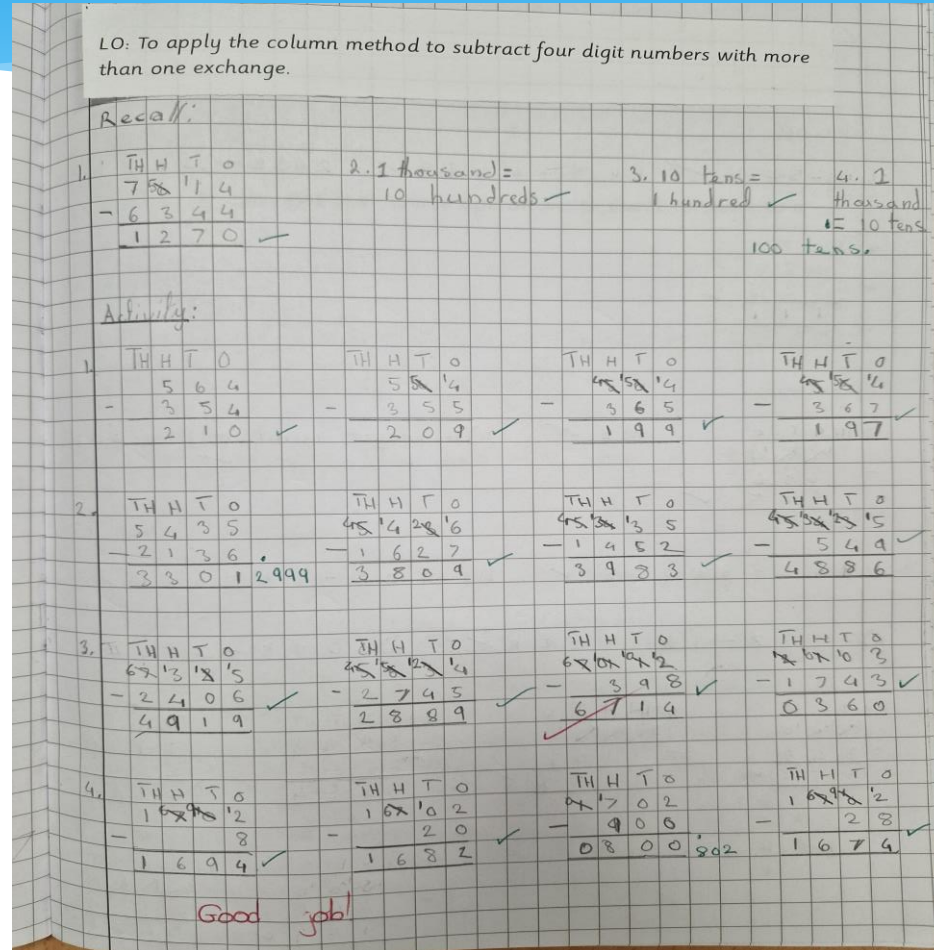 LO: To apply the column method to subtract four digit numbers with more
than one exchange.
Recall:
1. TH H T O
7 5 1 4
- 6 3 4 4
1 2 7 0
2. 1 thousand =
10 hundreds
3. 10 tens =
1 hundred
4. 1
thousand
= 10 tens
100 tens.
Activity:
1. TH H T O
5 6 4
- 3 5 4
2 1 0
TH H T O
- 3 5 5
2 0 9
TH H T O
- 3 6 5
1 9 9
TH H T O
- 3 6 7
1 9 7
2. TH H T O
5 4 3 5
- 2 1 3 6
3 3 0 1 2999
TH H T O
- 1 6 2 7
3 8 0 9
TH H T O
- 1 4 5 2
3 9 8 3
TH H T O
- 5 4 9
4 8 8 6
3. TH H T O
- 2 4 0 6
4 9 1 9
TH H T O
- 2 7 4 5
2 8 8 9
TH H T O
- 3 9 8
6 7 1 4
TH H T O
- 1 7 4 3
0 3 6 0
4. TH H T O
- 8
1 6 9 4
TH H T O
- 2 0
1 6 8 2
TH H T O
- 9 0 0
0 8 0 0 802
TH H T O
- 2 8
1 6 7 4
Good job!